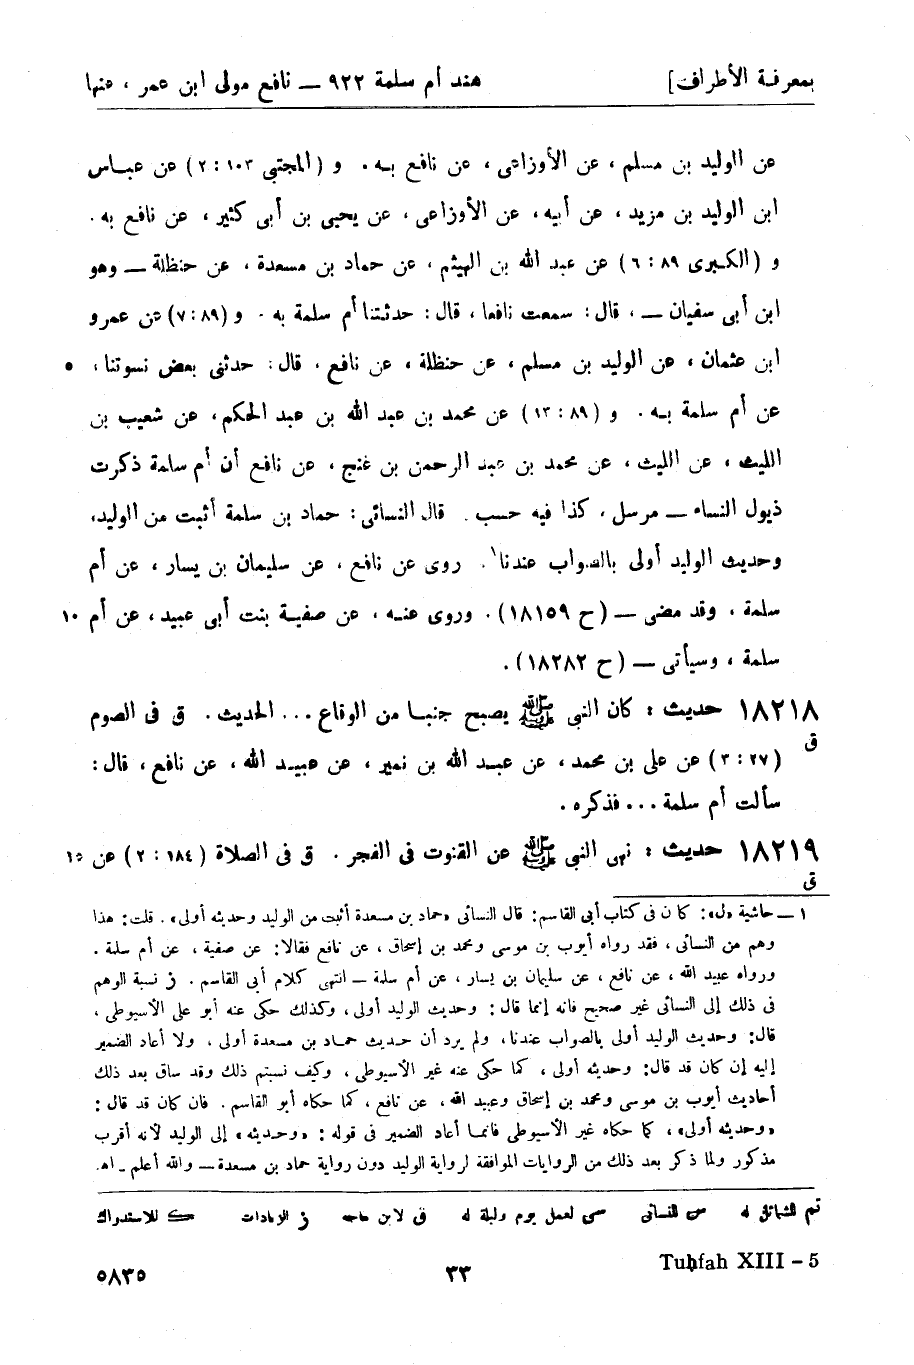 بمعرفة الأطراف] هند أم سلمة ٩٢٢ ــ نافع مولى ابن عمر ، عنها
عن الوليد بن مسلم ، عن الأوزاعى ، عن نافع بـه . و (المجتبى ١٠٣ : ٢) عن عبـاس
ابن الوليد بن مزيد ، عن أبيه ، عن الأوزاعى ، عن يحيى بن أبى كثير ، عن نافع به .
و (الكبرى ٨٩ : ٦) عن عبد الله بن الهيثم ، عن حماد بن مسعدة ، عن حنظلة ــ وهو
ابن أبى سفيان ــ ، قال : سمعت نافعا ، قال : حدثتنا أم سلمة به . و (٨٩ : ٧) عن عمرو
ابن عثمان ، عن الوليد بن مسلم ، عن حنظلة ، عن نافع ، قال : حدثنى بعض نسوتنا ، ٥
عن أم سلمة بـه . و (٨٩ : ١٣) عن محمد بن عبد الله بن عبد الحكم ، عن شعيب بن
الليث ، عن الليث ، عن محمد بن عبد الرحمن بن غنج ، عن نافع أن أم سلمة ذكرت
ذيول النساء ــ مرسل ، كذا فيه حسب . قال النسائى : حماد بن سلمة أثبت من الوليد ،
وحديث الوليد أولى بالصواب عندنا١ . روى عن نافع ، عن سليمان بن يسار ، عن أم
سلمة ، وقد مضى ــ (ح ١٨١٥٩) . وروى عنـه ، عن صفيـة بنت أبى عبيد ، عن أم ١٠
سلمة ، وسيأتى ــ (ح ١٨٢٨٢) .
١٨٢١٨ حديث : كان النبى ﷺ يصبح جنبـا من الوقاع ... الحديث . ق فى الصوم
ق
(٢٧ : ٣) عن على بن محمد ، عن عبـد الله بن نمير ، عن عبيـد الله ، عن نافع ، قال :
سألت أم سلمة ... فذكره .
١٨٢١٩ حديث : نهى النبى ﷺ عن القنوت فى الفجر . ق فى الصلاة (١٨٤ : ٢) عن ١٥
ق
١ ــ حاشية «ل» : كان فى كتاب أبى القاسم : قال النسائى «حماد بن مسعدة أثبت من الوليد وحديثه أولى» . قلت : هذا
وهم من النسائى ، فقد رواه أيوب بن موسى ومحمد بن إسحاق ، عن نافع فقالا : عن صفية ، عن أم سلمة .
ورواه عبيد الله ، عن نافع ، عن سليمان بن يسار ، عن أم سلمة ــ انتهى كلام أبى القاسم . ز نسبة الوهم
فى ذلك إلى النسائى غير صحيح فانه إنما قال : وحديث الوليد أولى ، وكذلك حكى عنه أبو على الأسيوطى ،
قال : وحديث الوليد أولى بالصواب عندنا ، ولم يرد أن حـديث حمـاد بن مسعدة أولى ، ولا أعاد الضمير
إليه إن كان قد قال : وحديثه أولى ، كما حكى عنه غير الأسيوطى ، وكيف نسبتم ذلك وقد ساق بعد ذلك
أحاديث أيوب بن موسى ومحمد بن إسحاق وعبيد الله ، عن نافع ، كما حكاه أبو القاسم . فان كان قد قال :
«وحديثه أولى» ، كما حكاه غير الأسيوطى فانمـا أعاد الضمير فى قوله : «وحـديثه» إلى الوليد لأنه أقرب
مذكور ولما ذكر بعد ذلك من الروايات الموافقة لرواية الوليد دون رواية حماد بن مسعدة ــ والله أعلم ـ اهـ .
تم للشمائل له س للنسائى سى لعمل يوم وليلة له ق لابن ماجه ز الزيادات ك للاستدراك
Tuḥfah XIII – 5 ٣٣ ٥٨٣٥